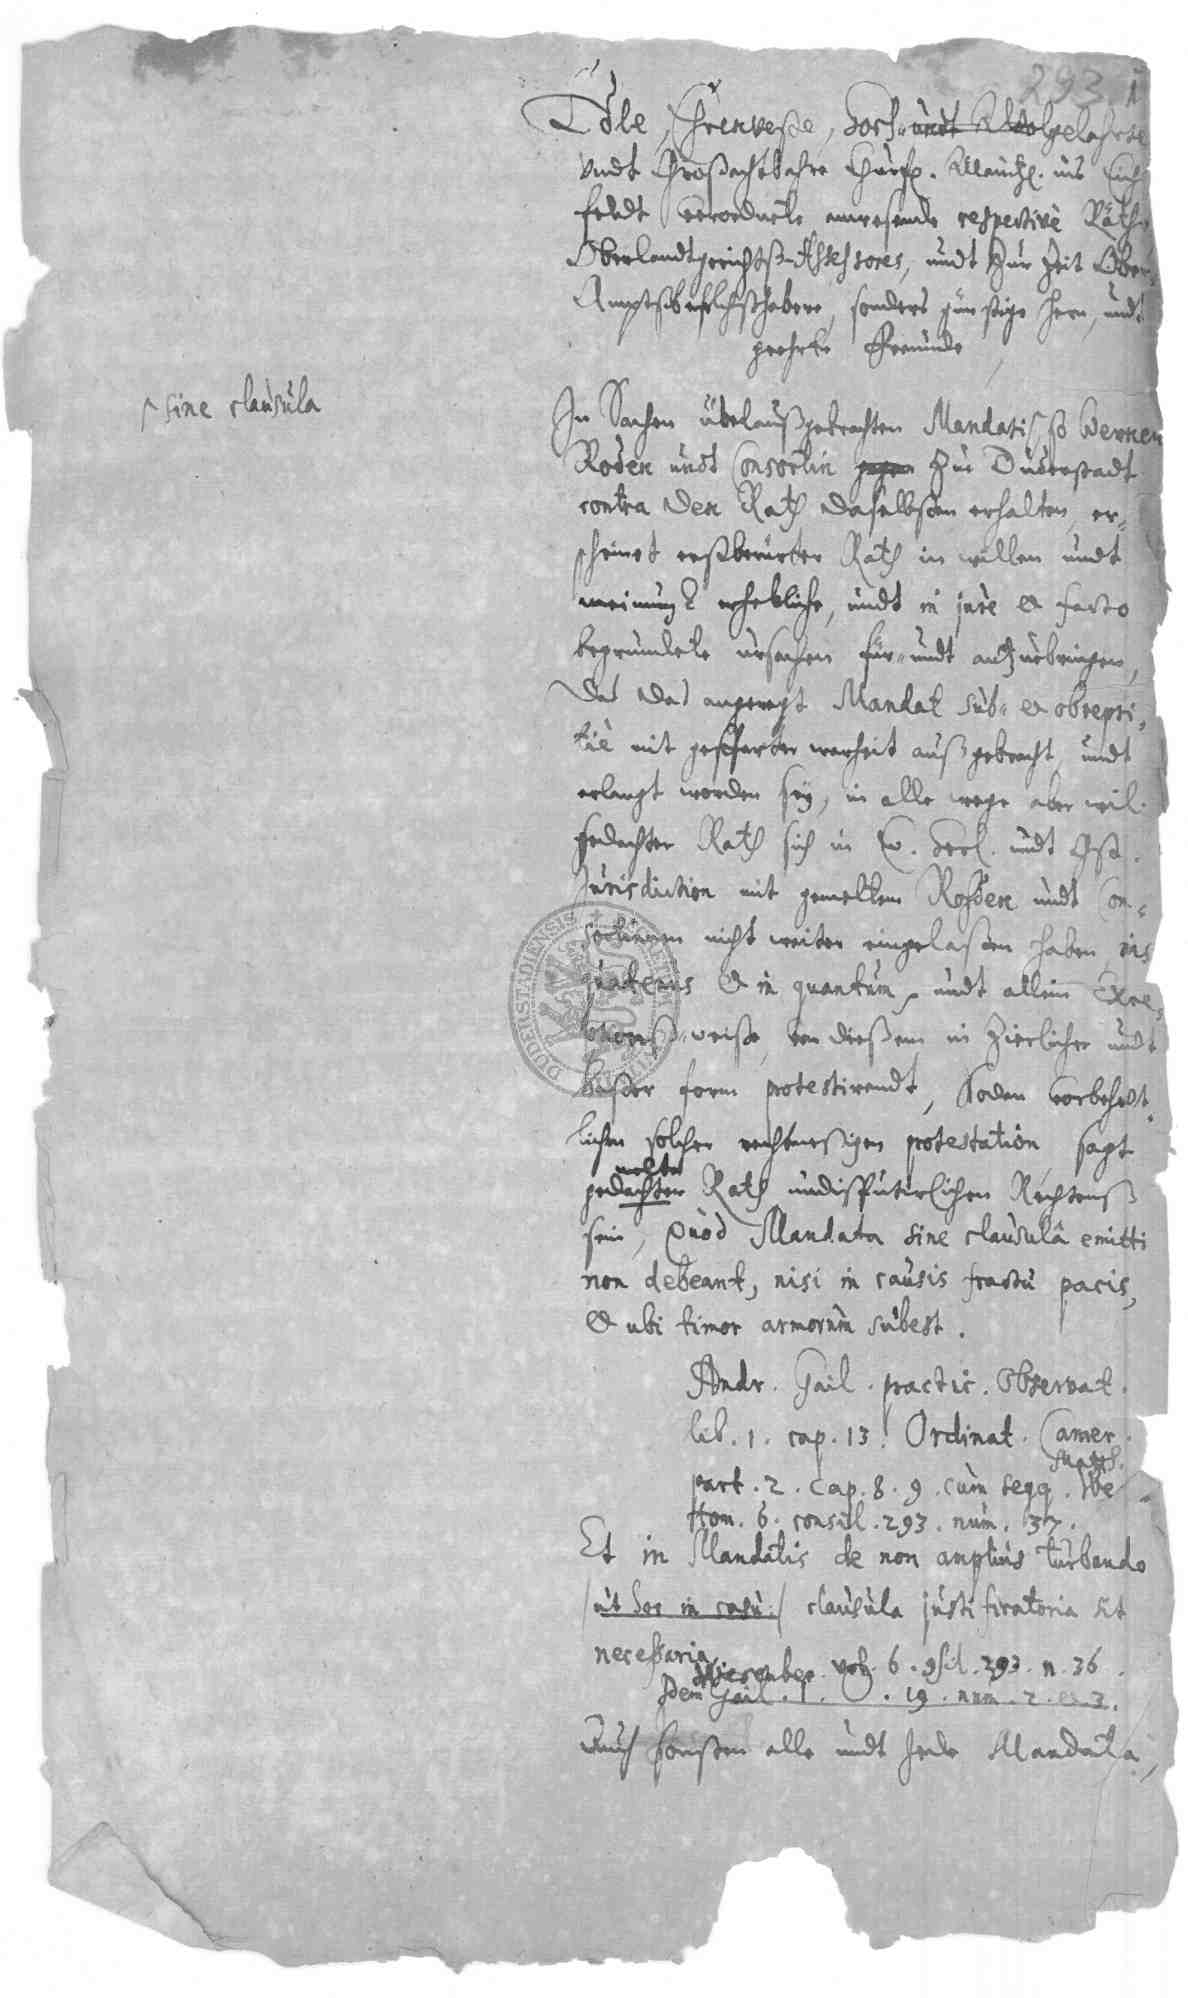 293 1
Edle, Ehrenveste, Hoch- undt Wolgelahrte
undt Großachtbahre Churf. Maintz. ins Eichß
feldt verordnete anwesende respectivè Räth
Oberlandtgerichtß-Assessores, undt Zur Zeit Ober-
Amptßbefelchßhabere, sonders günstige Hern, undt
geehrte Freunde
sine clausula
In Sachen übelaußgebrachten Mandati so Werner
Roden undt Consortin gegen Zue Duderstadt
contra Den Rath daselbsten erhalten, er-
scheinet erstberürter Rath in willen undt
meinung erhebliche, undt in jure et facto
begründete ursachen für- undt anZuebringen,
Das das angeregt Mandat sub- et obrepti-
tiè mit gesparter warheit außgebracht, undt
erlangt worden sey, in alle wege aber wil
gedachter Rath sich in E. Herl. undt Gst.
Jurisdiction mit gemelten Rohden undt Con-
sortinnen nicht weiter eingelaßen haben nis
quatenus et in quantum, undt allein Exce-
ptionß-weise, von dießem in Zierlicher undt
bester form protestirendt, Sodan vorbeheltt-
lichen solcher rechtmeßigen protestation, sagt
mehr
gedachter Rath undisputirlichen Rechtenß
sein, Quod Mandata sine clausulâ emitti
non debeant, nisi in causis fractae pacis,
et ubi timor armorum subest.
Andr. Gail. practic. Observat.
lib. 1. cap. 13. Ordinat. Camer.
part. 2. cap. 8. 9. cum seqq.
tom. 6. consil. 293. num. 37.
Et in Mandatis de non amplius turbando
/ut hoc in casu:/ clausula justificatoria sit
necessaria,
vol. 6. 9sil. 293. n. 36.
Idem Gail. 1. . 19. num. 2. et 3.
Auch sonsten alle undt Jede Mandata,